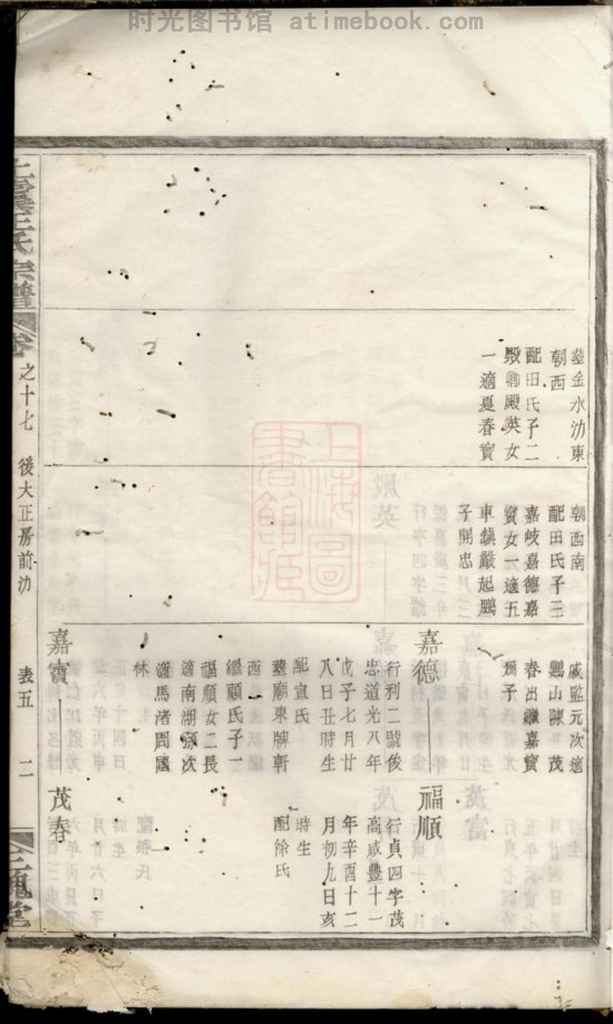 时光图书馆 atimebook.com
墓金水沕東
朝西
配田氏子二
殿卿殿英女
一適夏春寶
朝西南
配田氏子三
嘉岐嘉德嘉
寶女一適五
車鎮嚴起鵬
子開忠
戚監元次適
鸚山陳五茂
春出繼嘉寶
為子
嘉德
行列二號俊
忠道光八年
戊子七月廿
八日丑時生
配宣氏
墓廟東牌軒
西
繼顧氏子一
福順女二長
適南湖孫次
適馬渚周國
林
嘉寶
福順
行貞四字茂
高咸豐十一
年辛酉十二
月初九日亥
時生
配徐氏
茂春
王氏宗譜
卷
之十七
後大正房前沕
表五
二
三槐堂
上海圖書館藏